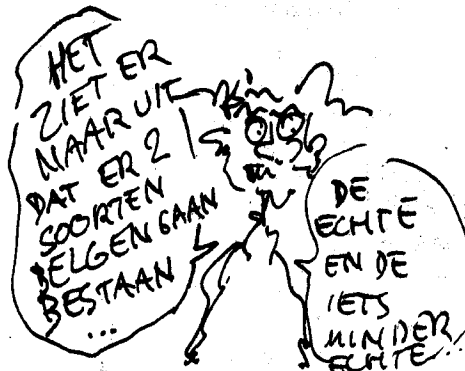 HET
ZIET ER
NAAR UIT
DAT ER 2
SOORTEN
BELGEN GAAN
BESTAAN
...
DE
ECHTE
EN DE
IETS
MINDER
ECHTE...